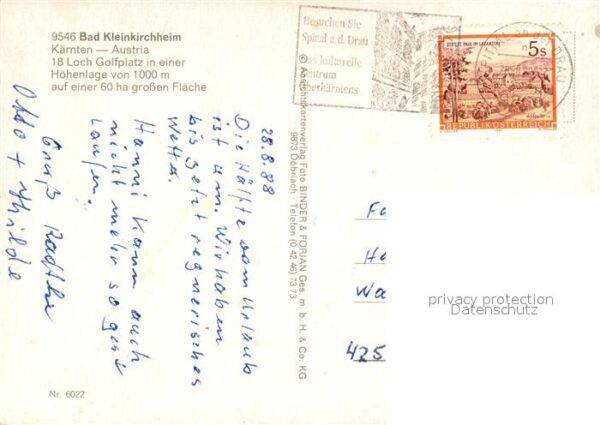 9546 Bad Kleinkirchheim
Kärnten — Austria
18 Loch Golfplatz in einer
Höhenlage von 1000 m
auf einer 60 ha großen Fläche
Besuchen Sie
Spittal a.d. Drau
Das kulturelle
Zentrum
Oberkärntens
5s
REPUBLIK ÖSTERREICH
28.8.88
Die Hälfte vom Urlaub
ist um. Wir haben
bis jetzt regnerisches
Wetter.
Hanni kann auch
nicht mehr so gut
Laufen.
Gruß
Otto +
© Ansichtskartenverlag Foto BINDER & FORIAN Ges. m. b. H. & Co. KG
9873 Döbriach · Telefon (0 42 46) 73 73
Fa
Ha
Wa
425
privacy protection
Datenschutz
Nr. 6022